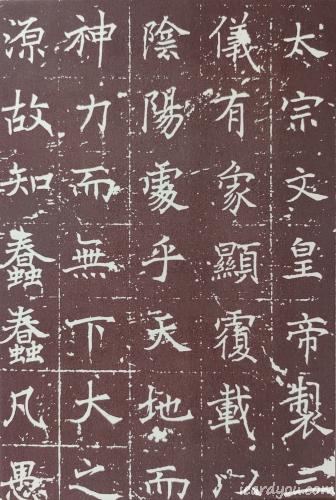 太宗文皇帝製
儀有象顯覆載以
陰陽處乎天地而
神力而無下大之
源故知蠢蠢凡愚
icardyou.com